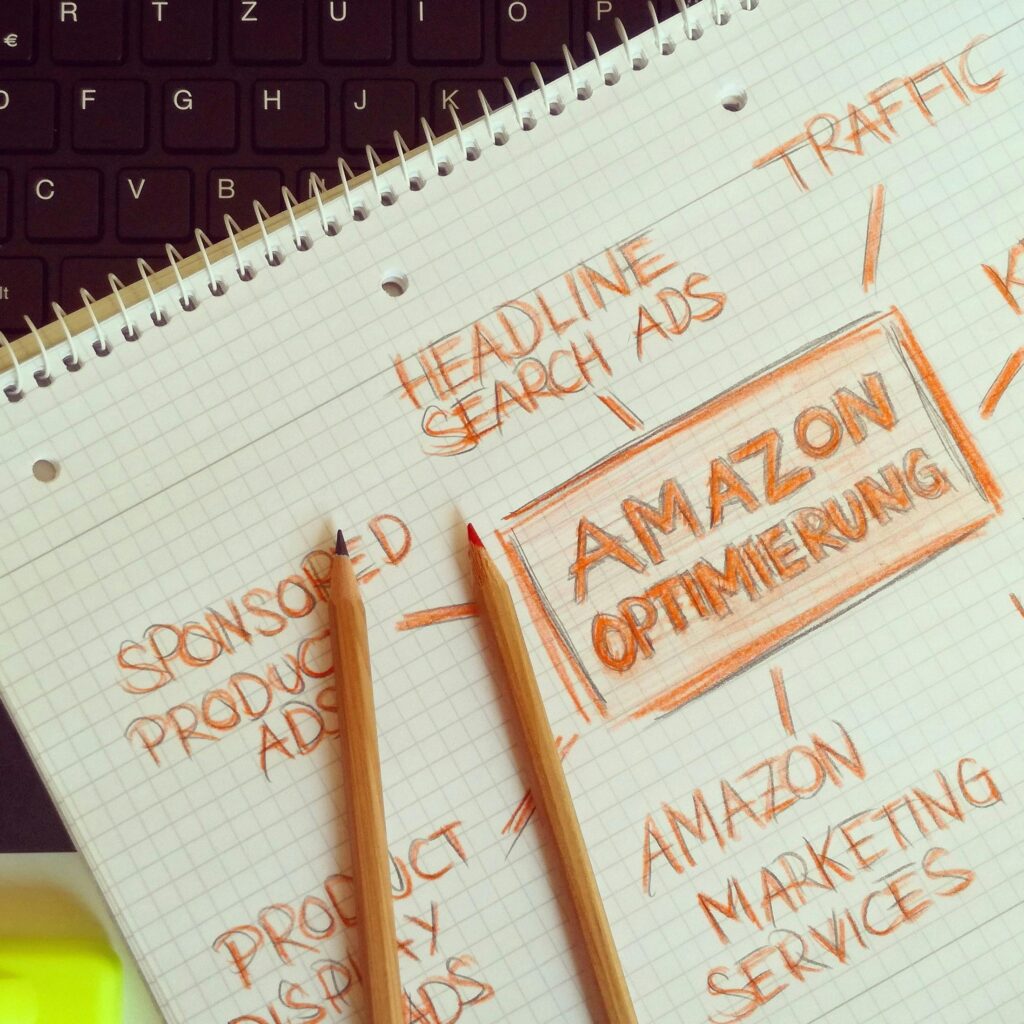 R T Z U I O P
€
D F G H J K
C V B
TRAFFIC
K
HEADLINE
SEARCH ADS
AMAZON
OPTIMIERUNG
SPONSORED
PRODUCT
ADS
AMAZON
MARKETING
SERVICES
PRODUCT
DISPLAY
ADS